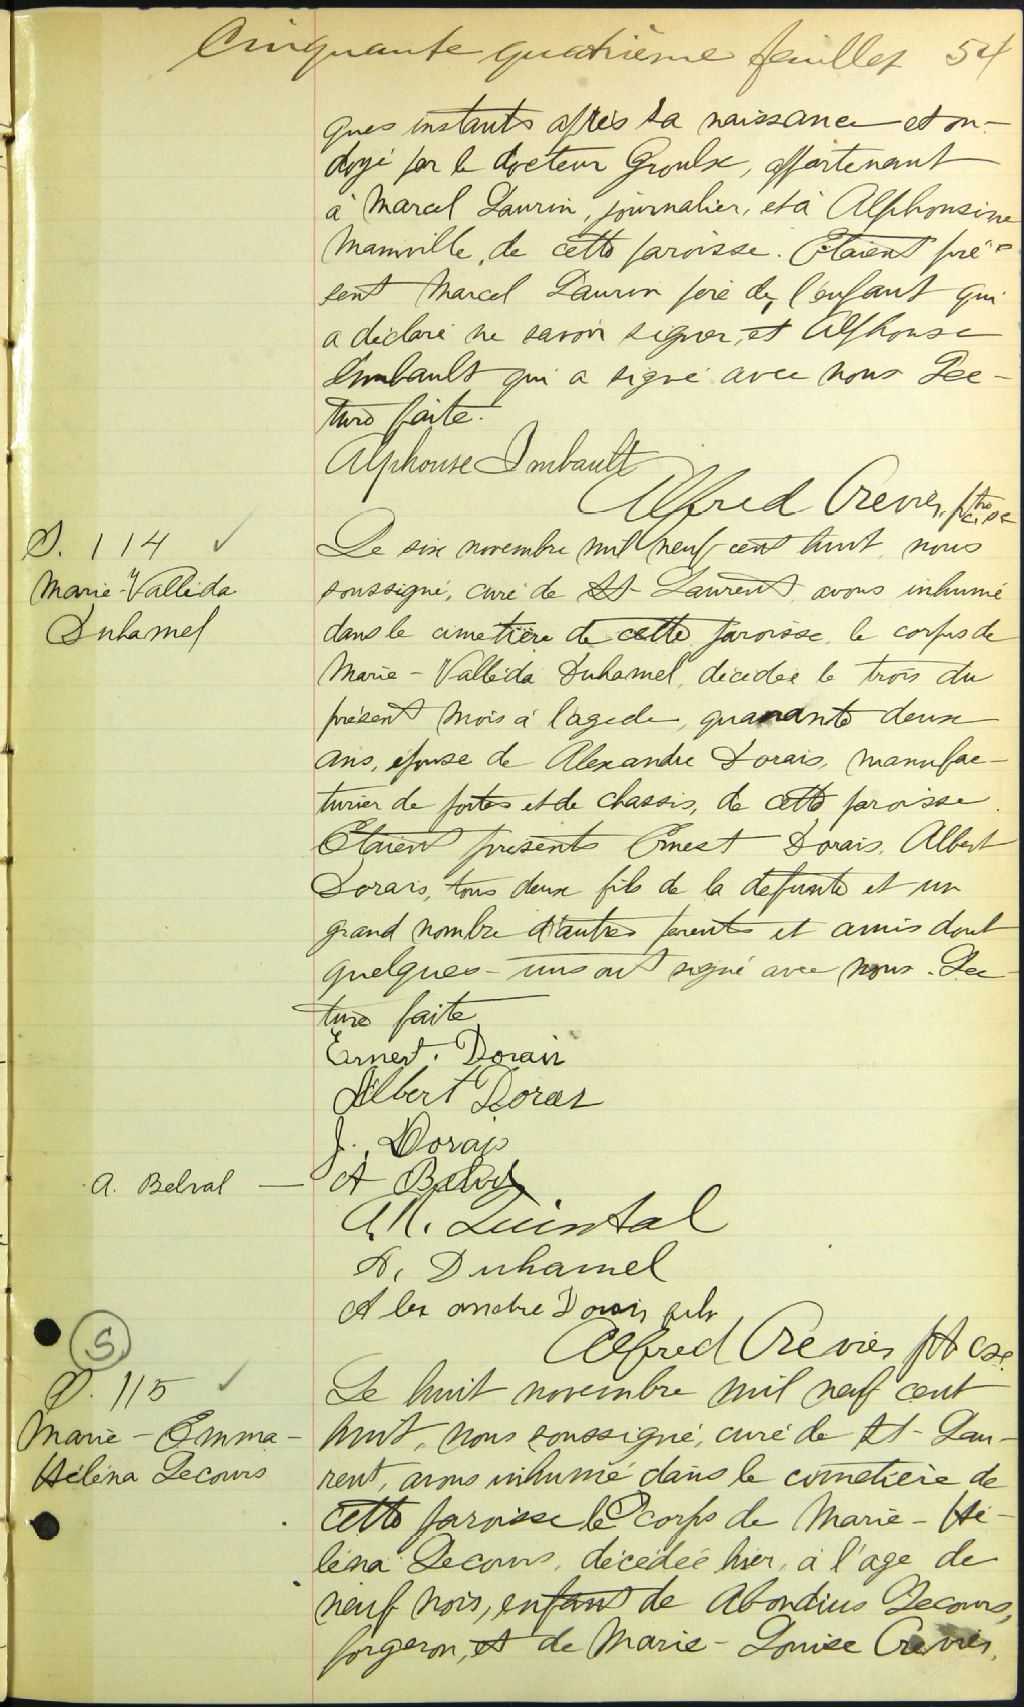 Cinquante quatrième feuillet 54
ques instants après sa naissance et on-
doyé par le docteur Groulx, appartenant
à Marcel Laurin, journalier, et à Alphonsine
Mainville, de cette paroisse. Etaient pré-
sent Marcel Laurin père de l'enfant qui
a déclaré ne savoir signer, et Alphonse
Imbault qui a signé avec nous Lec-
ture faite.
Alphonse Imbault
Alfred Crevier, ptre
S. 114
Marie-Valléda
Duhamel
Le six novembre mil neuf cent huit, nous
soussigné, curé de St-Laurent, avons inhumé
dans le cimetière de cette paroisse, le corps de
Marie-Valléda Duhamel, décédée le trois du
présent mois à l'age de, quarante deux
ans, épouse de Alexandre Dorais, manufac-
turier de portes et de chassis, de cette paroisse.
Etaient présents Ernest Dorais, Albert
Dorais, tous deux fils de la défunte et un
grand nombre d'autres parents et amis dont
quelques-uns ont signé avec nous. Lec-
ture faite
Ernest. Dorais
Albert Dorais
J. Dorais
A. Belval — A Belval
A.N. Quintal
A. Duhamel
Alexandre Dorais fils
Alfred Crevier ptre
S
S. 115
Marie-Emma-
Héléna Lecours
Le huit novembre mil neuf cent
huit, nous soussigné, curé de St-Lau-
rent, avons inhumé dans le cimetière de
cette paroisse le corps de Marie-Hé-
léna Lecours, décédée hier, à l'age de
neuf mois, enfant de Abondius Lecours,
forgeron, et de Marie-Louise Crevier.